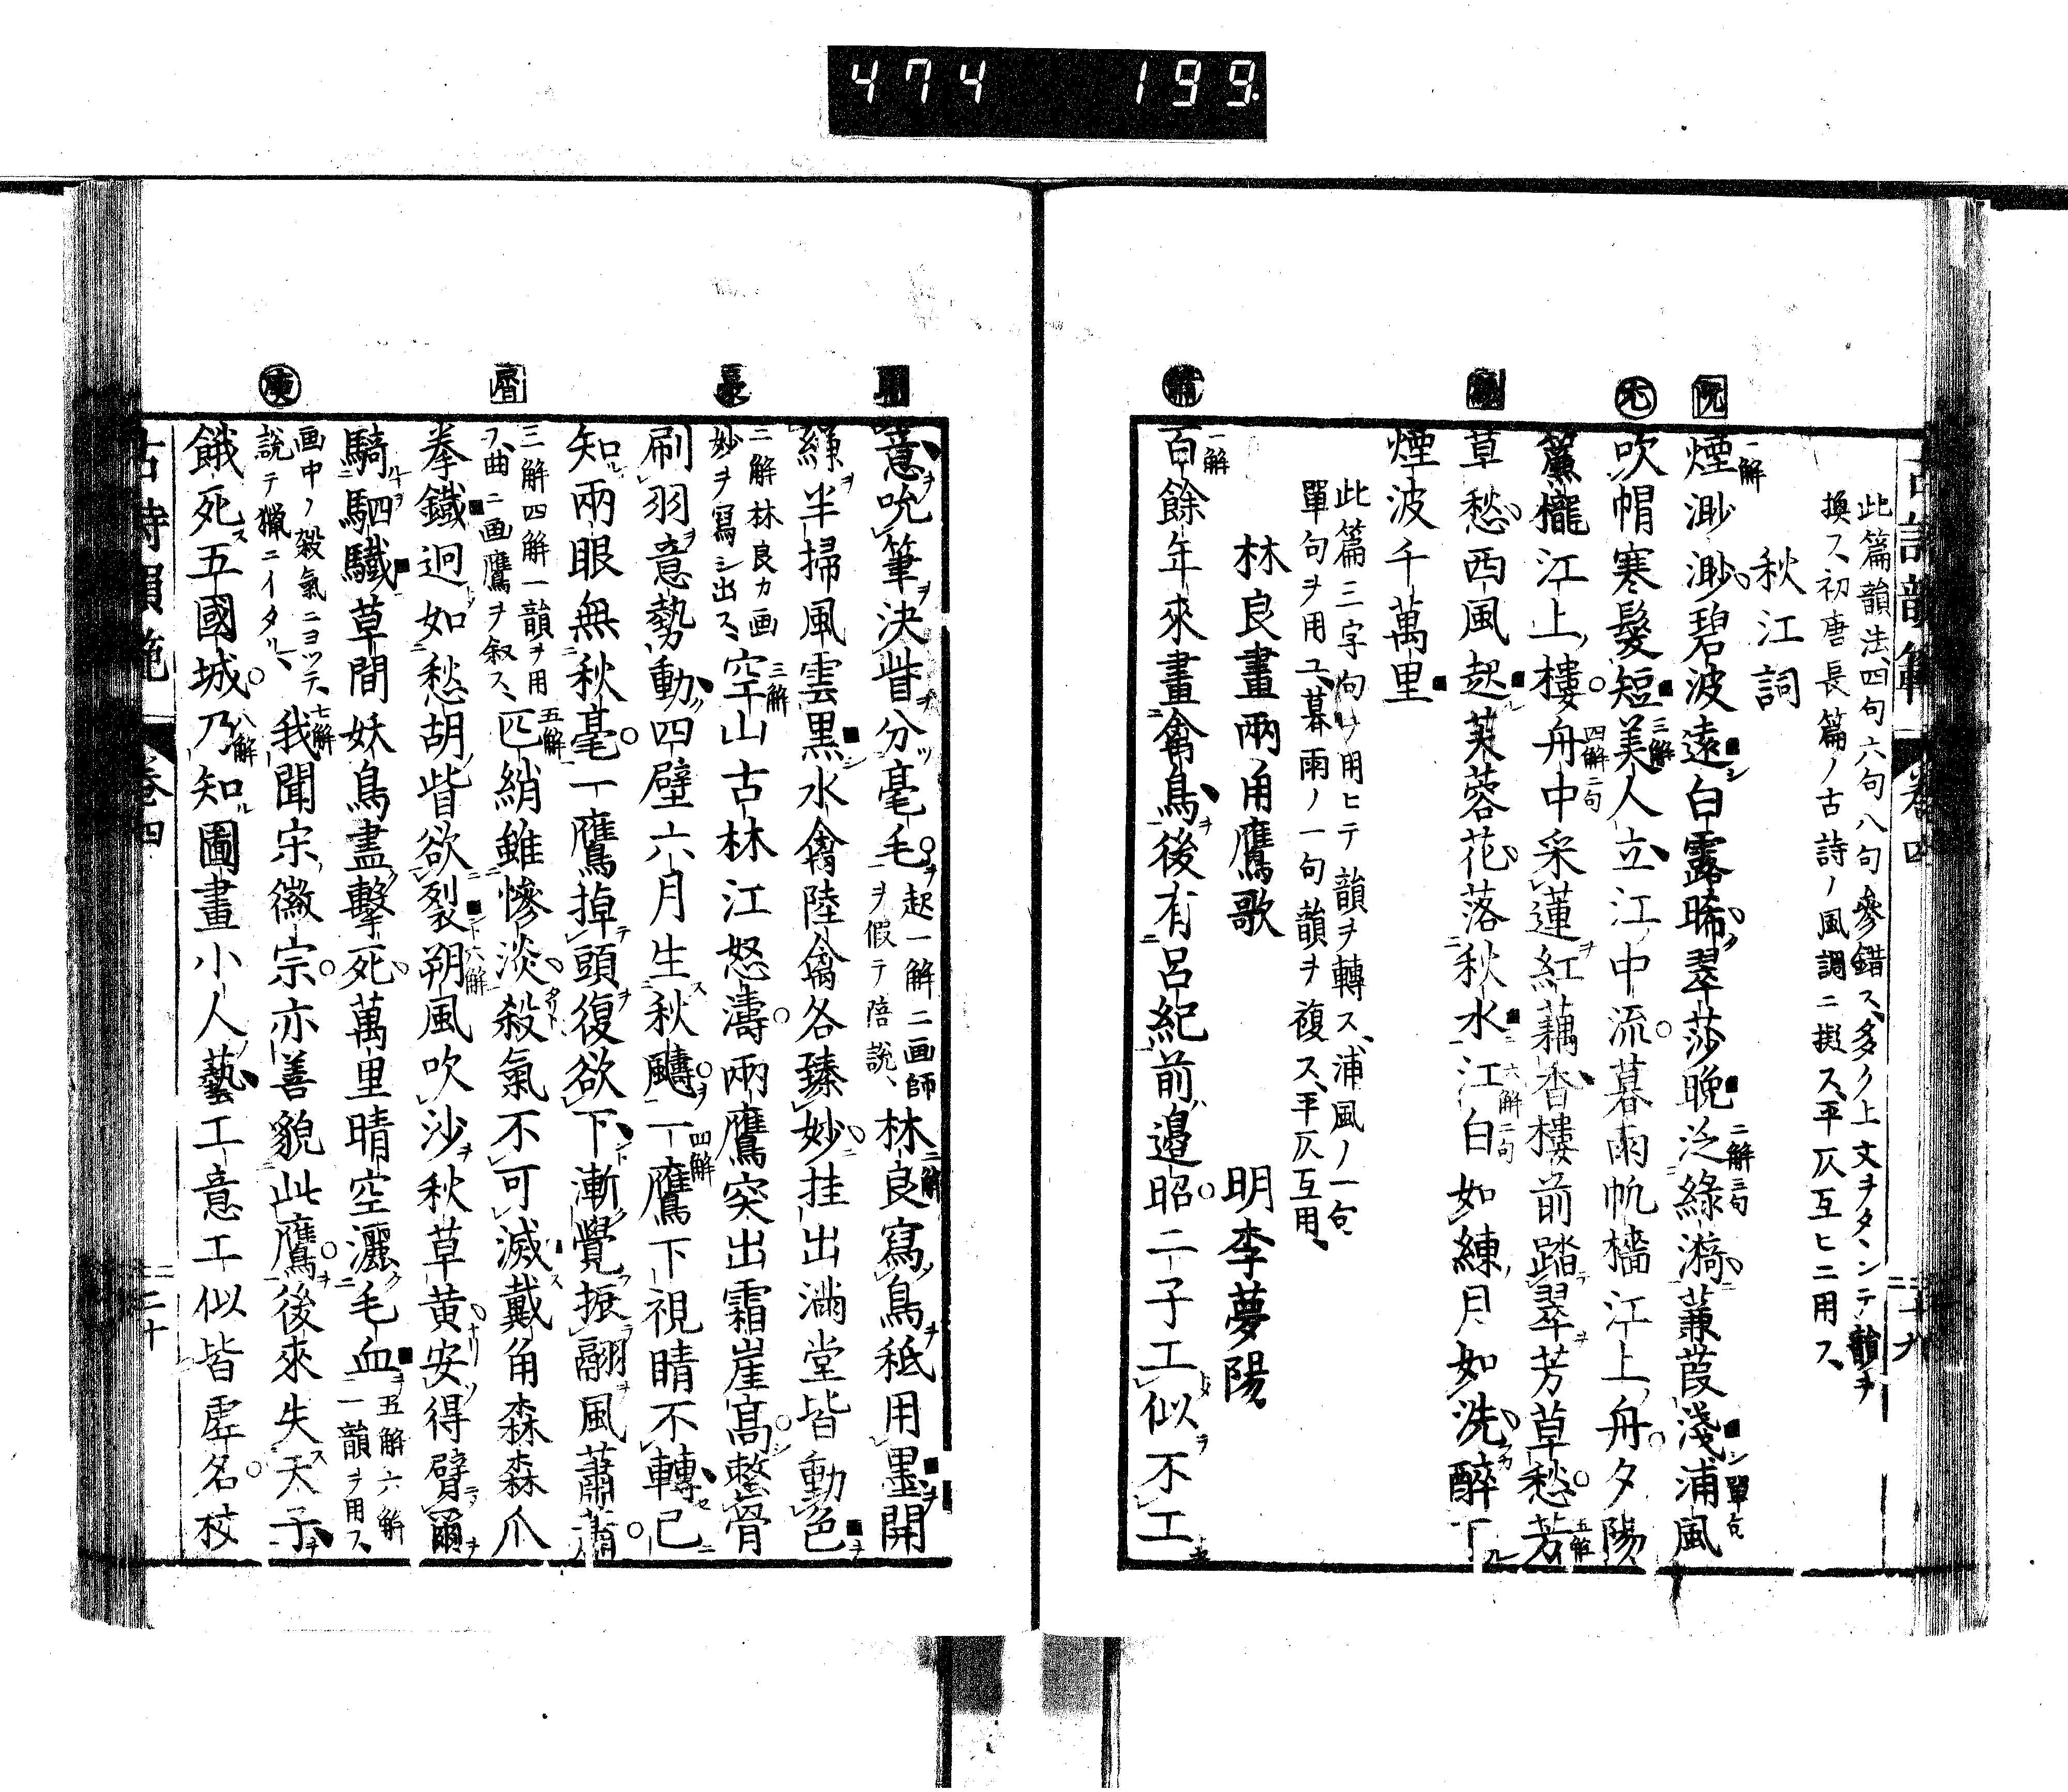 474 199
此篇韻法、四句六句八句參錯ス、多ク上文ヲタンテ、韻ヲ
換ス、初唐長篇ノ古詩ノ風調ニ擬ス、平仄互ヒニ用フ、
秋江詞
一解 煙渺渺碧波遠白露晞翠莎晚二解三句泛綠漪蒹葭淺浦風單句
吹帽寒髮短三解美人立江中流暮雨帆檣江上舟夕陽
簾櫳江上樓四解二句舟中采蓮紅藕香樓前踏翠芳草愁五解芳
草愁西風起芙蓉花落秋水六解二句江白如練月如洗醉下
煙波千萬里
此篇三字句ヲ用ヒテ韻ヲ轉ス、浦風ノ一句、
單句ヲ用ユ、暮雨ノ一句韻ヲ複ス、平仄互用、
林良畫兩角鷹歌 明李夢陽
一解 百餘年來畫禽鳥後有呂紀前邊昭二子工似不工
意吮筆決眥分毫毛起一解二画師
ヲ假テ陪說、二解林良寫鳥秪用墨開
縑半掃風雲黑水禽陸禽各臻妙挂出滿堂皆動色
二解林良カ画
妙ヲ寫シ出ス、三解空山古林江怒濤兩鷹突出霜崖高整骨
刷羽意勢動四壁六月生秋飈四解一鷹下視睛不轉已
知兩眼無秋毫一鷹掉頭復欲下漸覺振翮風蕭蕭
三解四解一韻ヲ用
フ、曲ニ画鷹ヲ叙ス、五解匹綃雖慘淡殺氣不可滅戴角森森爪
拳鐵迥如愁胡眥欲裂六解朔風吹沙秋草黃安得臂爾
騎駟驖草間妖鳥盡擊死萬里晴空灑毛血五解六解
一韻ヲ用ス、
画中ノ殺氣ニヨツテ、
說テ獵ニイタル、七解我聞宋徽宗亦善貌此鷹後來失天子
餓死五國城八解乃知圖畫小人藝工意工似皆虛名校
古詩韻範 卷四 二十